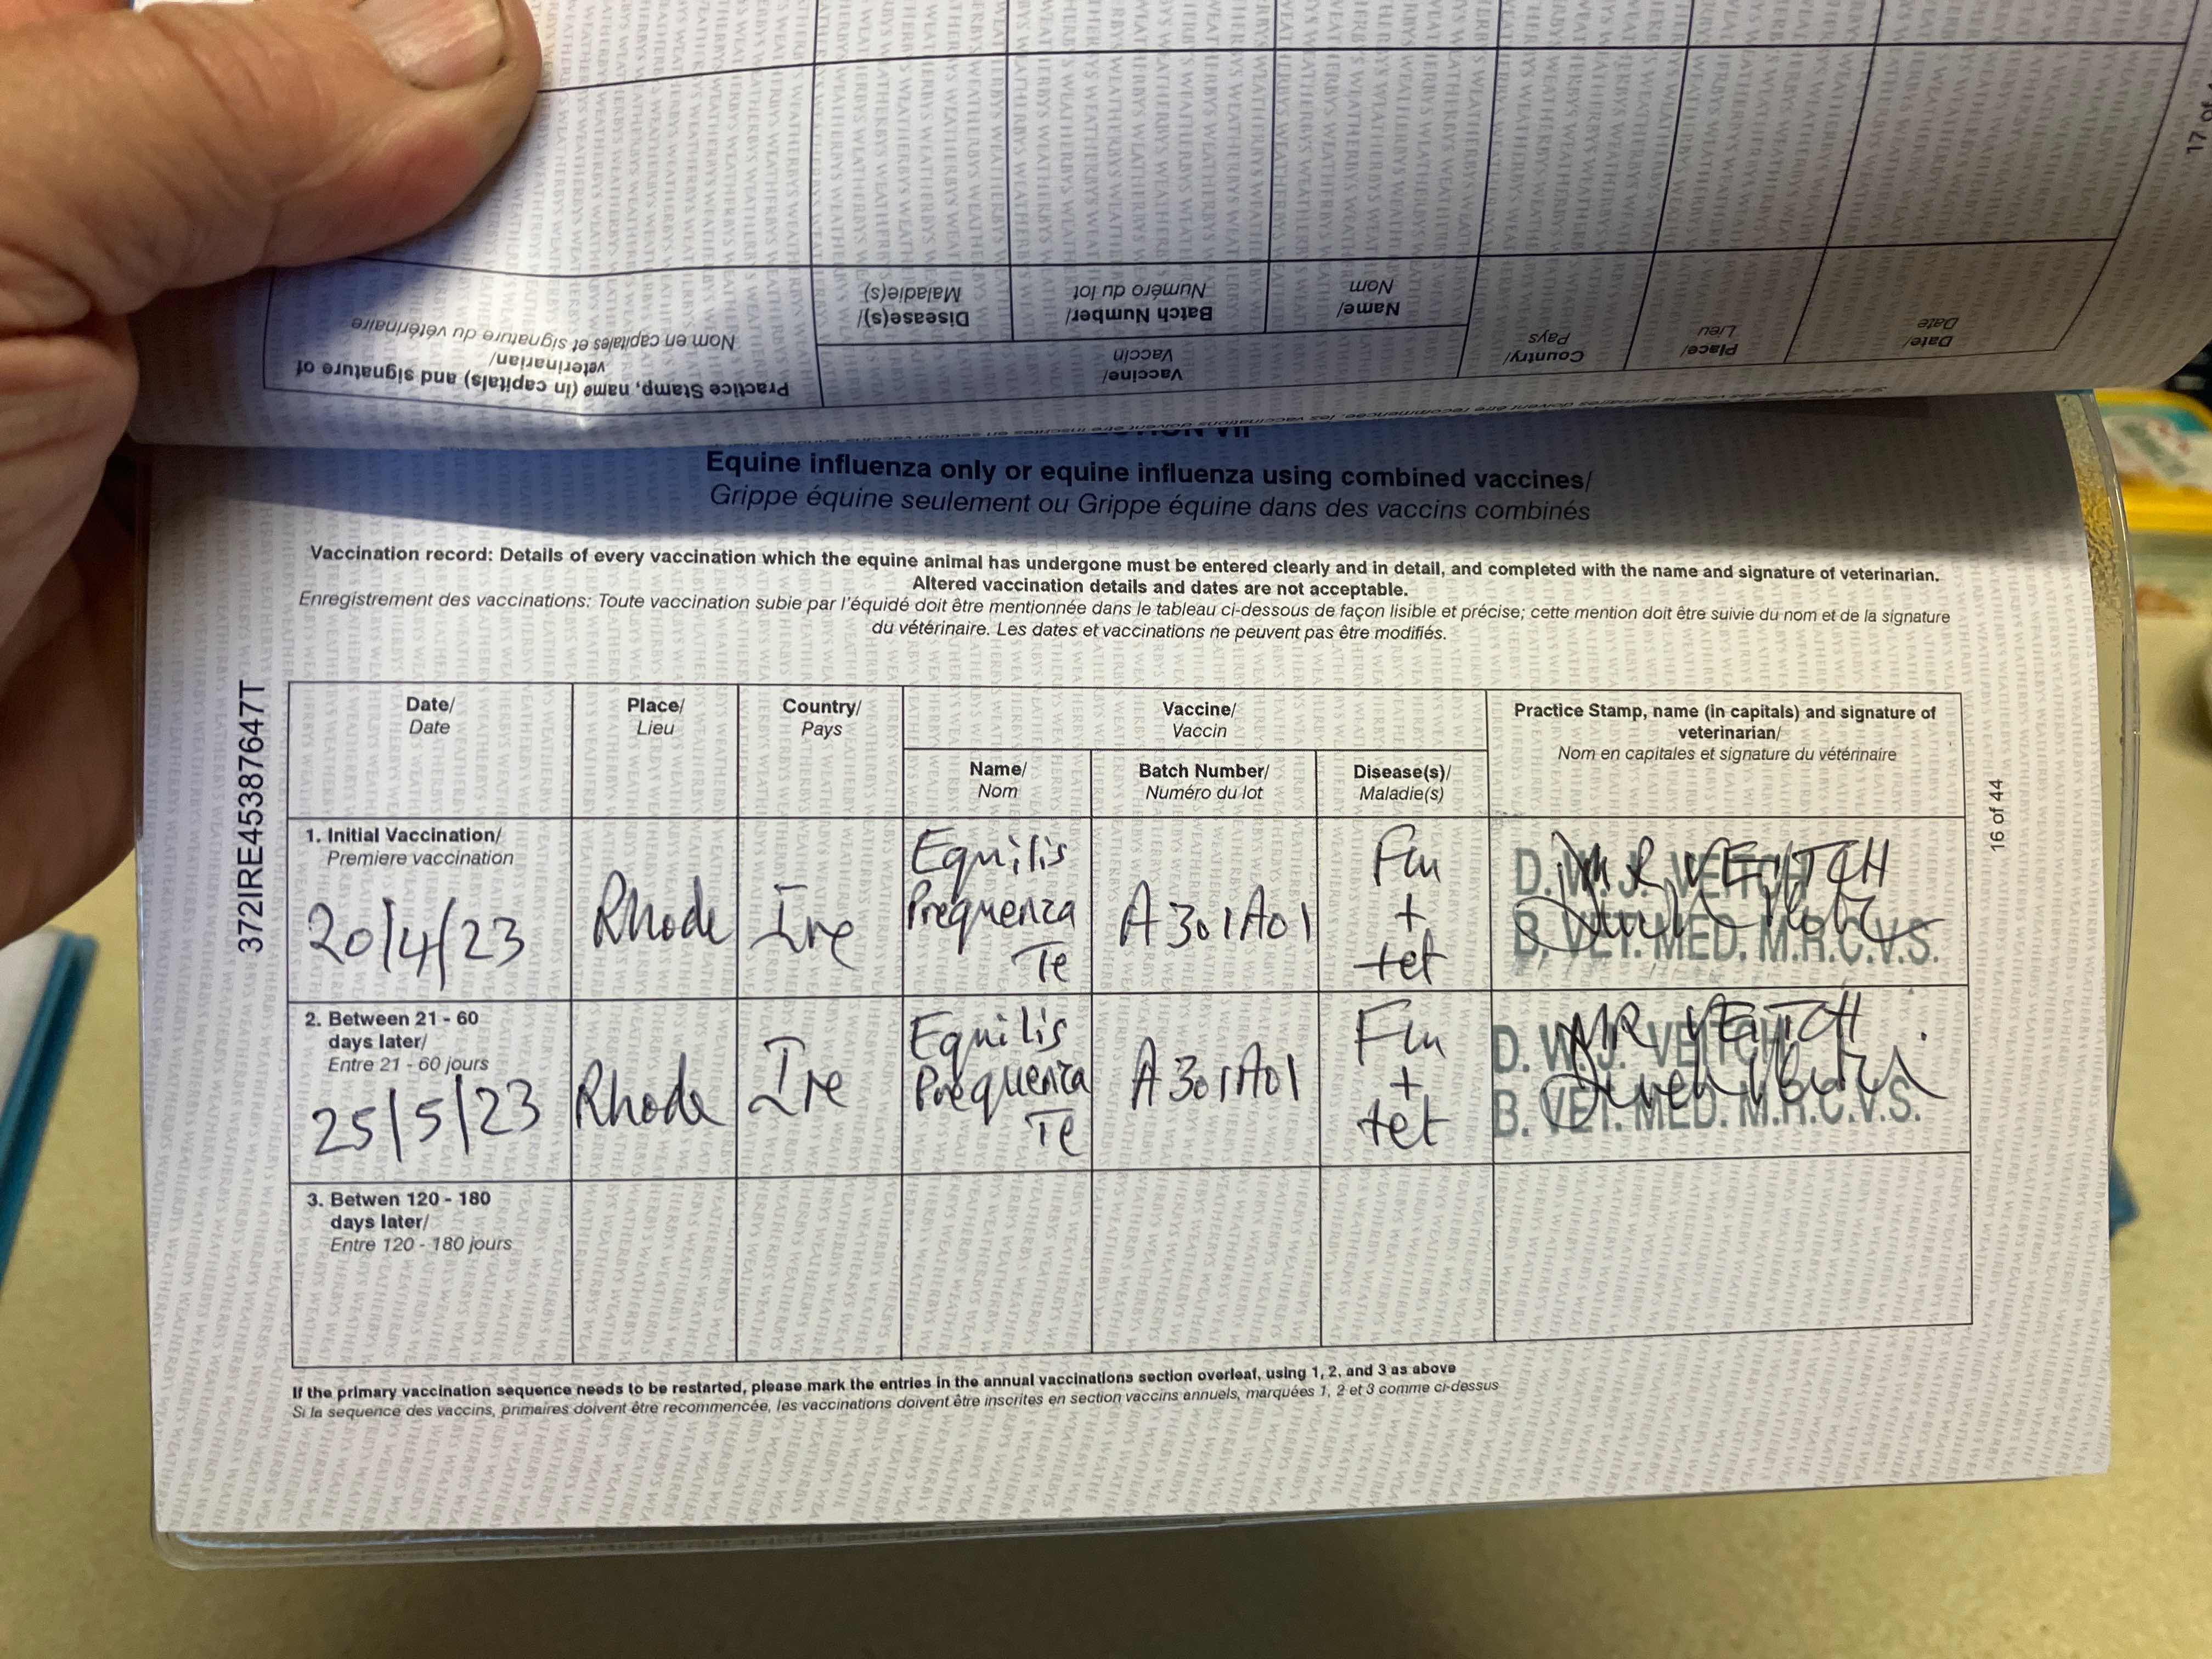 17 of
Practice Stamp, name (in capitals) and signature of
veterinarian/
Nom en capitales et signature du vétérinaire
Vaccine/
Vaccin
Disease(s)/
Maladie(s)
Batch Number/
Numéro du lot
Name/
Nom
Country/
Pays
Place/
Lieu
Date/
Date
Equine influenza only or equine influenza using combined vaccines/
Grippe équine seulement ou Grippe équine dans des vaccins combinés
Vaccination record: Details of every vaccination which the equine animal has undergone must be entered clearly and in detail, and completed with the name and signature of veterinarian.
Altered vaccination details and dates are not acceptable.
Enregistrement des vaccinations: Toute vaccination subie par l'équidé doit être mentionnée dans le tableau ci-dessous de façon lisible et précise; cette mention doit être suivie du nom et de la signature
du vétérinaire. Les dates et vaccinations ne peuvent pas être modifiés.
372IRE45387647T
16 of 44
Date/
Date
Place/
Lieu
Country/
Pays
Vaccine/
Vaccin
Practice Stamp, name (in capitals) and signature of
veterinarian/
Nom en capitales et signature du vétérinaire
Name/
Nom
Batch Number/
Numéro du lot
Disease(s)/
Maladie(s)
1. Initial Vaccination/
Premiere vaccination
20/4/23
Rhode
Ire
Equilis
Prequenza
Te
A301A01
Flu
+
tet
MR VEITCH
D. W. J. VEITCH
B. VET. MED. M.R.C.V.S.
2. Between 21 - 60
days later/
Entre 21 - 60 jours
25/5/23
Rhode
Ire
Equilis
Prequenza
Te
A301A01
Flu
+
tet
MR VEITCH
D. W. J. VEITCH
B. VET. MED. M.R.C.V.S.
3. Betwen 120 - 180
days later/
Entre 120 - 180 jours
If the primary vaccination sequence needs to be restarted, please mark the entries in the annual vaccinations section overleaf, using 1, 2, and 3 as above
Si la sequence des vaccins, primaires doivent être recommencée, les vaccinations doivent être inscrites en section vaccins annuels, marquées 1, 2 et 3 comme ci-dessus